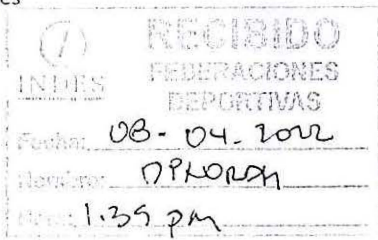 INDES
RECIBIDO
FEDERACIONES
DEPORTIVAS
Fecha: 08-04-2022
Nombre:
Hora: 1:39 pm